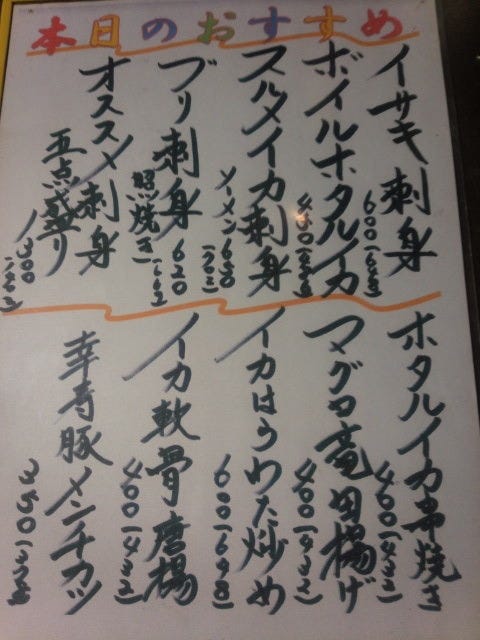 本日のおすすめ
イサキ刺身
600(648)
ボイルホタルイカ
スルメイカ刺身
ソーメン 650(702)
ブリ刺身
照焼き 620
オススメ刺身
五点盛り
ホタルイカ串焼き
400(432)
マグロ竜田揚げ
400(432)
イカはらわた炒め
600(648)
イカ軟骨唐揚
400(432)
幸寿豚メンチカツ
350(378)